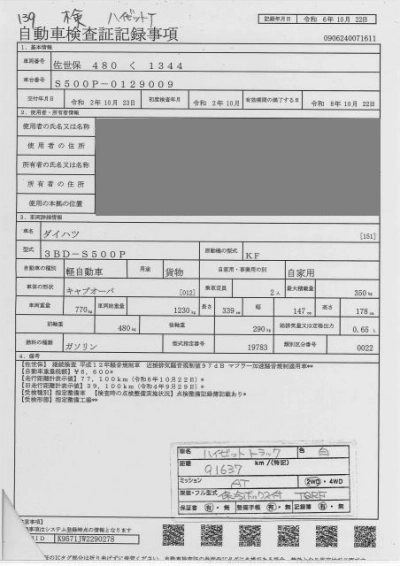 139 検 ハイゼットT
記録年月日 令和 6年10月22日
自動車検査証記録事項
0906240071611
1. 基本情報
車両番号 佐世保 480 く 1344
車台番号 S500P-0129009
交付年月日 令和 2年10月 23日 初度検査年月 令和 2年10月 有効期間の満了する日 令和 8年10月 22日
2. 使用者・所有者情報
使用者の氏名又は名称
使用者の住所
所有者の氏名又は名称
所有者の住所
使用の本拠の位置
3. 車両詳細情報
車名 ダイハツ [151]
型式 3BD-S500P 原動機の型式 KF
自動車の種別 軽自動車 用途 貨物 自家用・事業用の別 自家用
車体の形状 キャブオーバ [012] 乗車定員 2人 最大積載量 350kg
車両重量 770kg 車両総重量 1230kg 長さ 339cm 幅 147cm 高さ 178cm
前軸重 480kg 後軸重 290kg 総排気量又は定格出力 0.65 L
燃料の種類 ガソリン 型式指定番号 19783 類別区分番号 0022
4. 備考
【佐世保】 継続検査 平成12年騒音規制車 近接排気騒音規制値97dB マフラー加速騒音規制適用車**
【自動車重量税額】¥6,600*
【走行距離計表示値】77,100km (令和6年10月22日)*
【旧走行距離計表示値】39,100km (令和4年9月29日)*
【受検種別】指定整備車 【検時の点検整備実施状況】点検整備記録簿記載あり*
【受検形態】指定整備工場**
車名 ハイゼットトラック 色 白
距離 91637 km/(特記)
ミッション AT 2WD・4WD
TORF
保証書 有・無 整備手帳 有・無 記録簿 有・無
X9571JW2290278